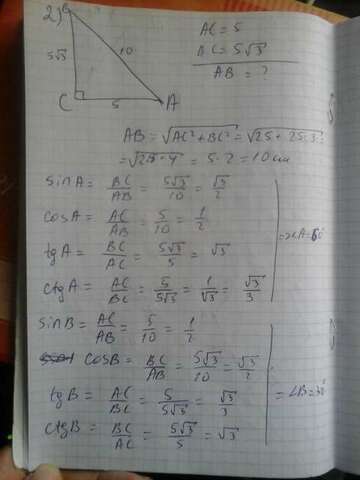 2)
B
5√3
10
C
5
A
AC = 5
AC = 5√3
AB = ?
AB = √AC² + BC² = √25 + 25·3 =
= √25·4 = 5·2 = 10 см
sin A = BC/AB = 5√3/10 = √3/2
cos A = AC/AB = 5/10 = 1/2
tg A = BC/AC = 5√3/5 = √3
ctg A = AC/BC = 5/5√3 = 1/√3 = √3/3
=>∠A=60°
sin B = AC/AB = 5/10 = 1/2
cos B = BC/AB = 5√3/10 = √3/2
tg B = AC/BC = 5/5√3 = √3/3
ctg B = BC/AC = 5√3/5 = √3
=∠B=30°